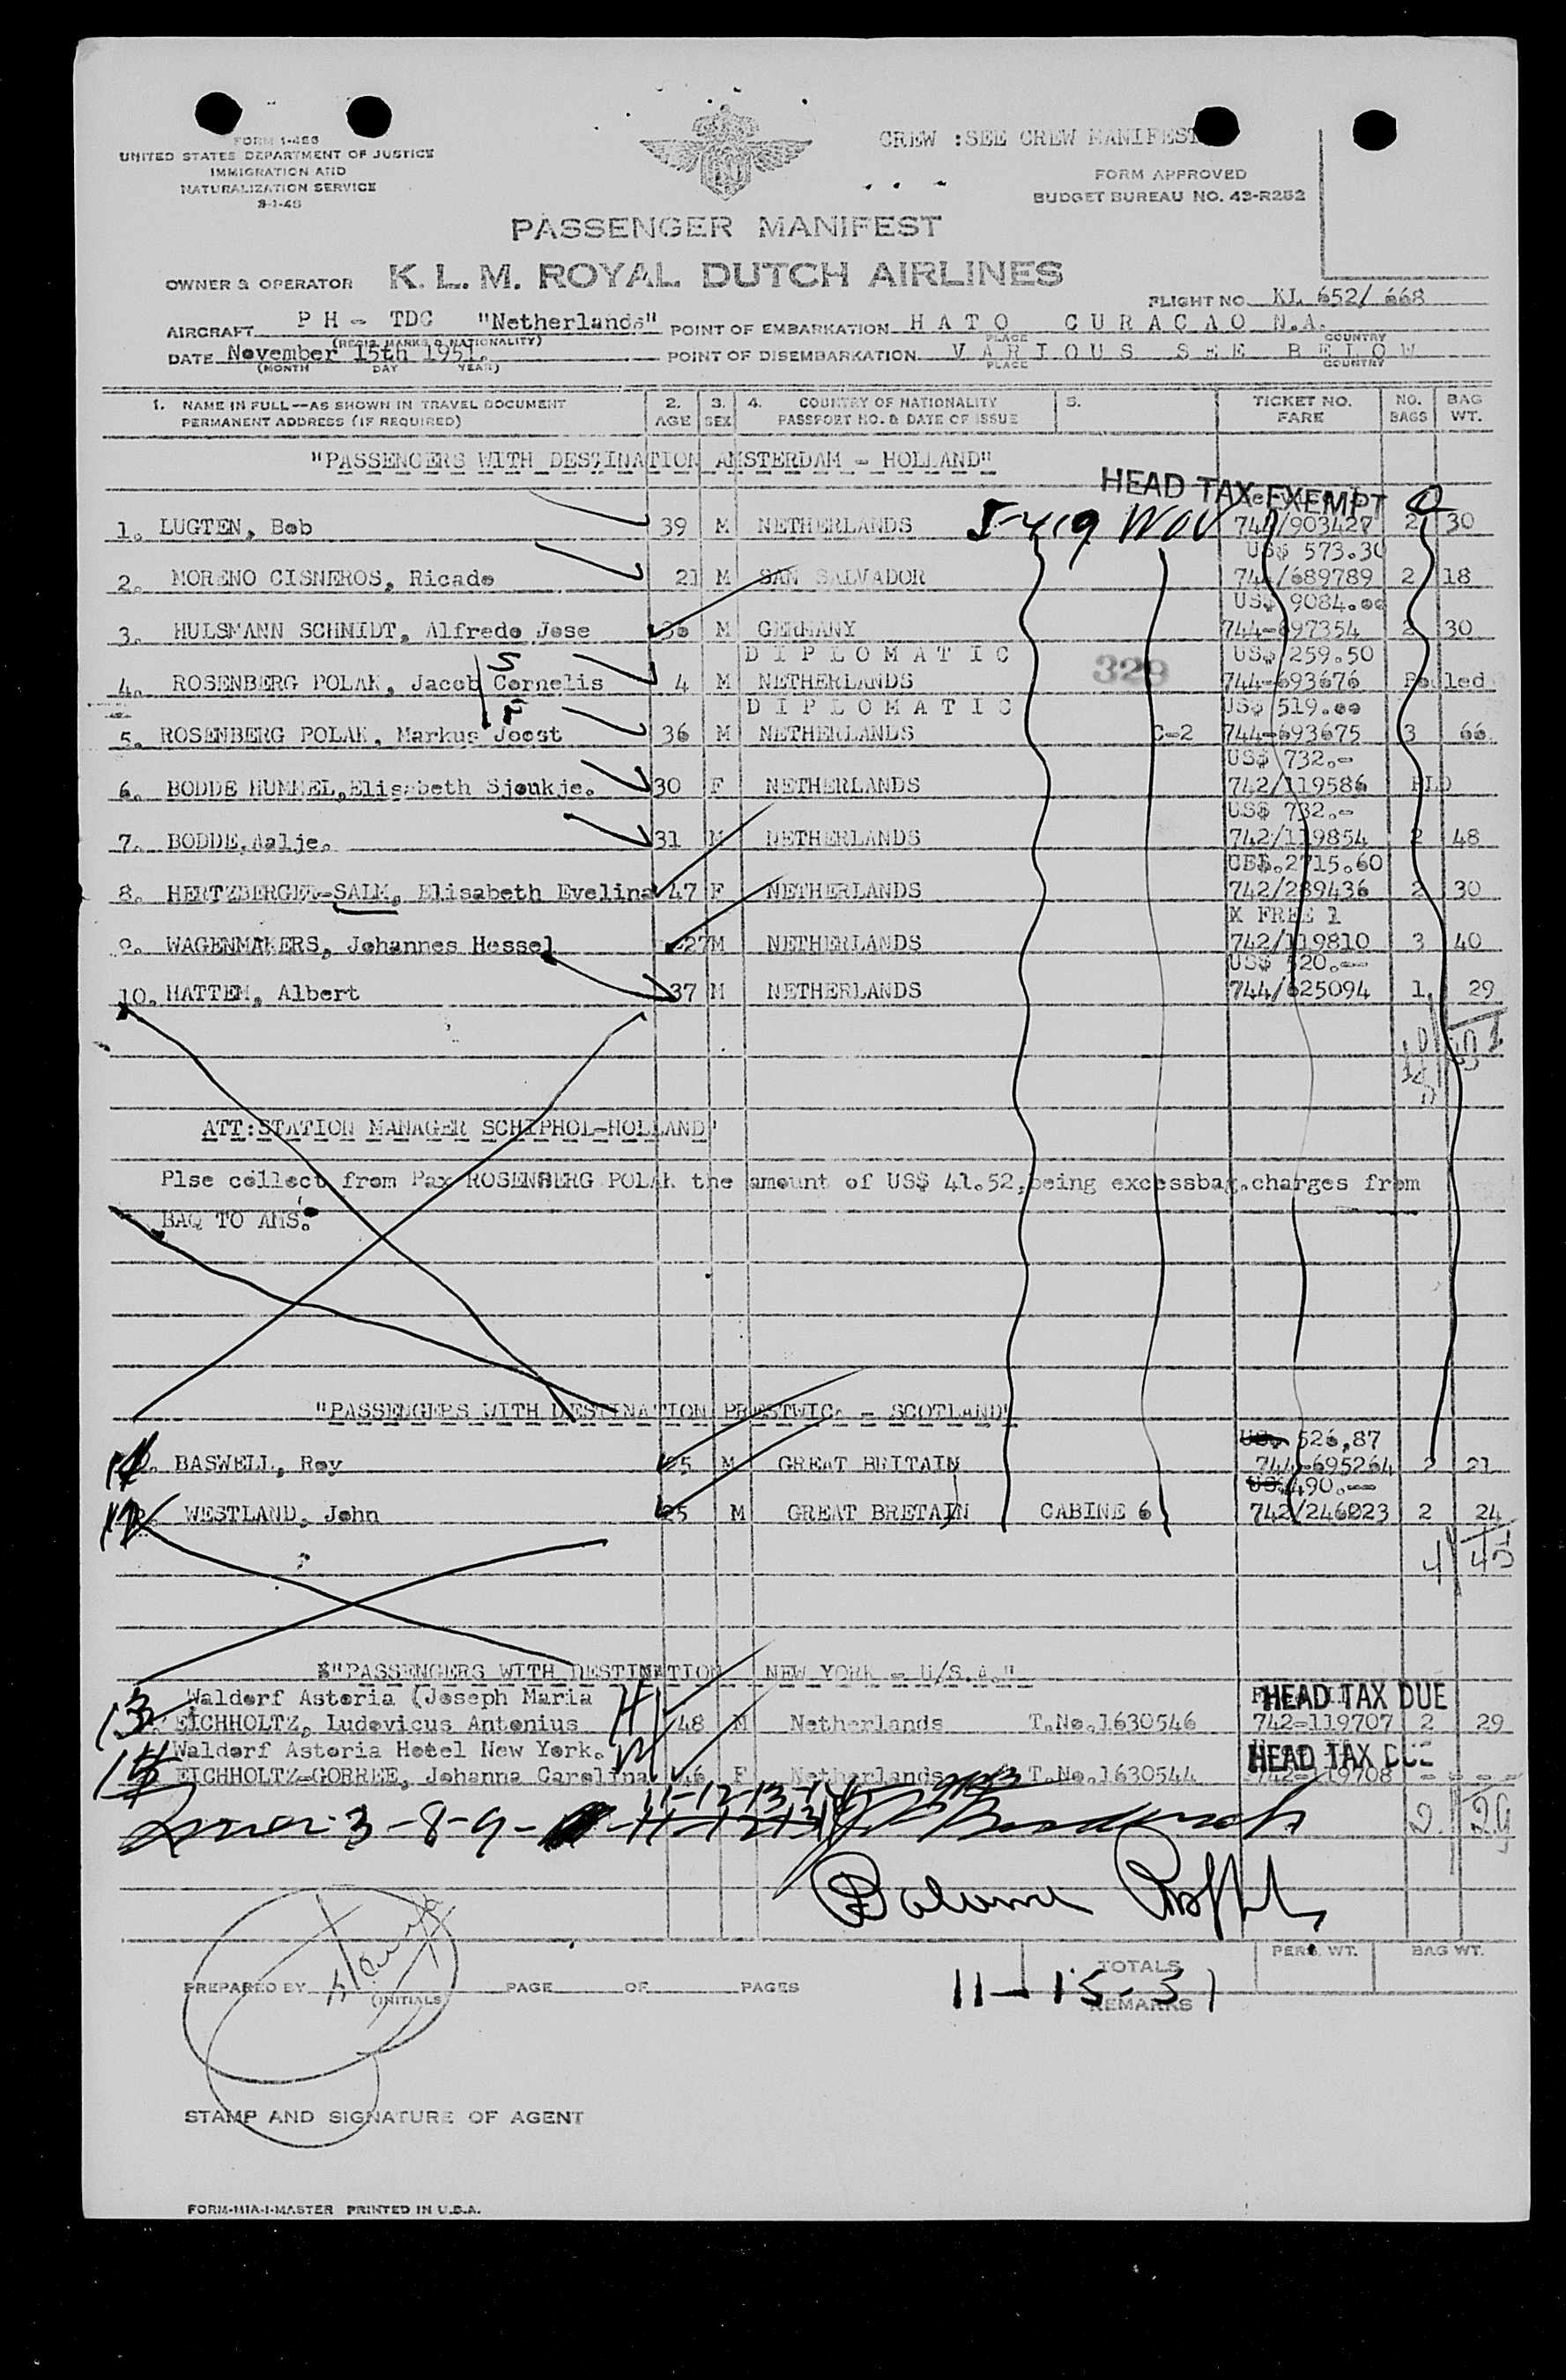 CREW :SEE CREW MANIFEST
FORM I-466
UNITED STATES DEPARTMENT OF JUSTICE
IMMIGRATION AND
NATURALIZATION SERVICE
FORM APPROVED
BUDGET BUREAU NO. 43-R252
PASSENGER MANIFEST
OWNER & OPERATOR K. L. M. ROYAL DUTCH AIRLINES
FLIGHT NO. KL 652/ 668
AIRCRAFT P H - TDC "Netherlands" POINT OF EMBARKATION H A T O C U R A C A O N.A.
(REGIS. MARKS & NATIONALITY) PLACE COUNTRY
DATE November 15th 1951. POINT OF DISEMBARKATION V A R I O U S S E E B E L O W
(MONTH DAY YEAR) PLACE COUNTRY
1. NAME IN FULL--AS SHOWN IN TRAVEL DOCUMENT 2. 3. 4. COUNTRY OF NATIONALITY 5. TICKET NO. NO. BAG
PERMANENT ADDRESS (IF REQUIRED) AGE SEX PASSPORT NO. & DATE OF ISSUE FARE BAGS WT.
"PASSENGERS WITH DESTINATION AMSTERDAM - HOLLAND"
HEAD TAX EXEMPT
1. LUGTEN, Bob 39 M NETHERLANDS 744/903427 2 30
US$ 573.30
2. MORENO CISNEROS, Ricado 21 M SAN SALVADOR 744/689789 2 18
US$ 9084.00
3. HULSMANN SCHMIDT, Alfredo Jose 30 M GERMANY 744-697354 2 30
D I P L O M A T I C US$ 259.50
S
329
4. ROSENBERG POLAK, Jacob Cornelis 4 M NETHERLANDS 744-693676 Pooled
D I P L O M A T I C US$ 519.00
F
5. ROSENBERG POLAK, Markus Joost 36 M NETHERLANDS C-2 744-693675 3 66
US$ 732.-
6. BODDE HUMMEL,Elisabeth Sjoukje. 30 F NETHERLANDS 742/119586 PLD
US$ 732.-
7. BODDE,Aalje. 31 M NETHERLANDS 742/119854 2 48
2715.60
8. HERTZBERGER-SALM, Elisabeth Evelina 47 F NETHERLANDS 742/289436 2 30
X FREE 1
9. WAGENMAKERS, Johannes Hessel 27 M NETHERLANDS 742/119810 3 40
US$ 520.--
10. HATTEM, Albert 37 M NETHERLANDS 744/625094 1 29
ATT:STATION MANAGER SCHIPHOL-HOLLAND"
Plse collect from Pax ROSENBERG POLAK the amount of US$ 41.52,being excessbag.charges from
BAQ TO AMS.
"PASSENGERS WITH DESTINATION PRESTWICK - SCOTLAND"
526,87
11. BASWELL, Roy 25 M GREAT BRITAIN 744-695264 2 21
490.--
12. WESTLAND, John 25 M GREAT BRETAIN CABINE 6 742/246023 2 24
4 45
"PASSENGERS WITH DESTINATION NEW YORK - U/S.A."
Waldorf Astoria (Joseph Maria HEAD TAX DUE
13 EICHHOLTZ, Ludovicus Antonius 48 M Netherlands T.No.1630546 742-119707 2 29
Waldorf Astoria Hotel New York. HEAD TAX DUE
14 EICHHOLTZ-GOBREE, Johanna Carolina 46 F Netherlands T.No.1630544 742-119708 - - - -
3-8-9- 11-12-13-14
2. 29
PERS. WT. BAG WT.
TOTALS
PREPARED BY (INITIALS) PAGE OF PAGES
11-15-51
REMARKS
STAMP AND SIGNATURE OF AGENT
FORM-MIA-I-MASTER PRINTED IN U.S.A.